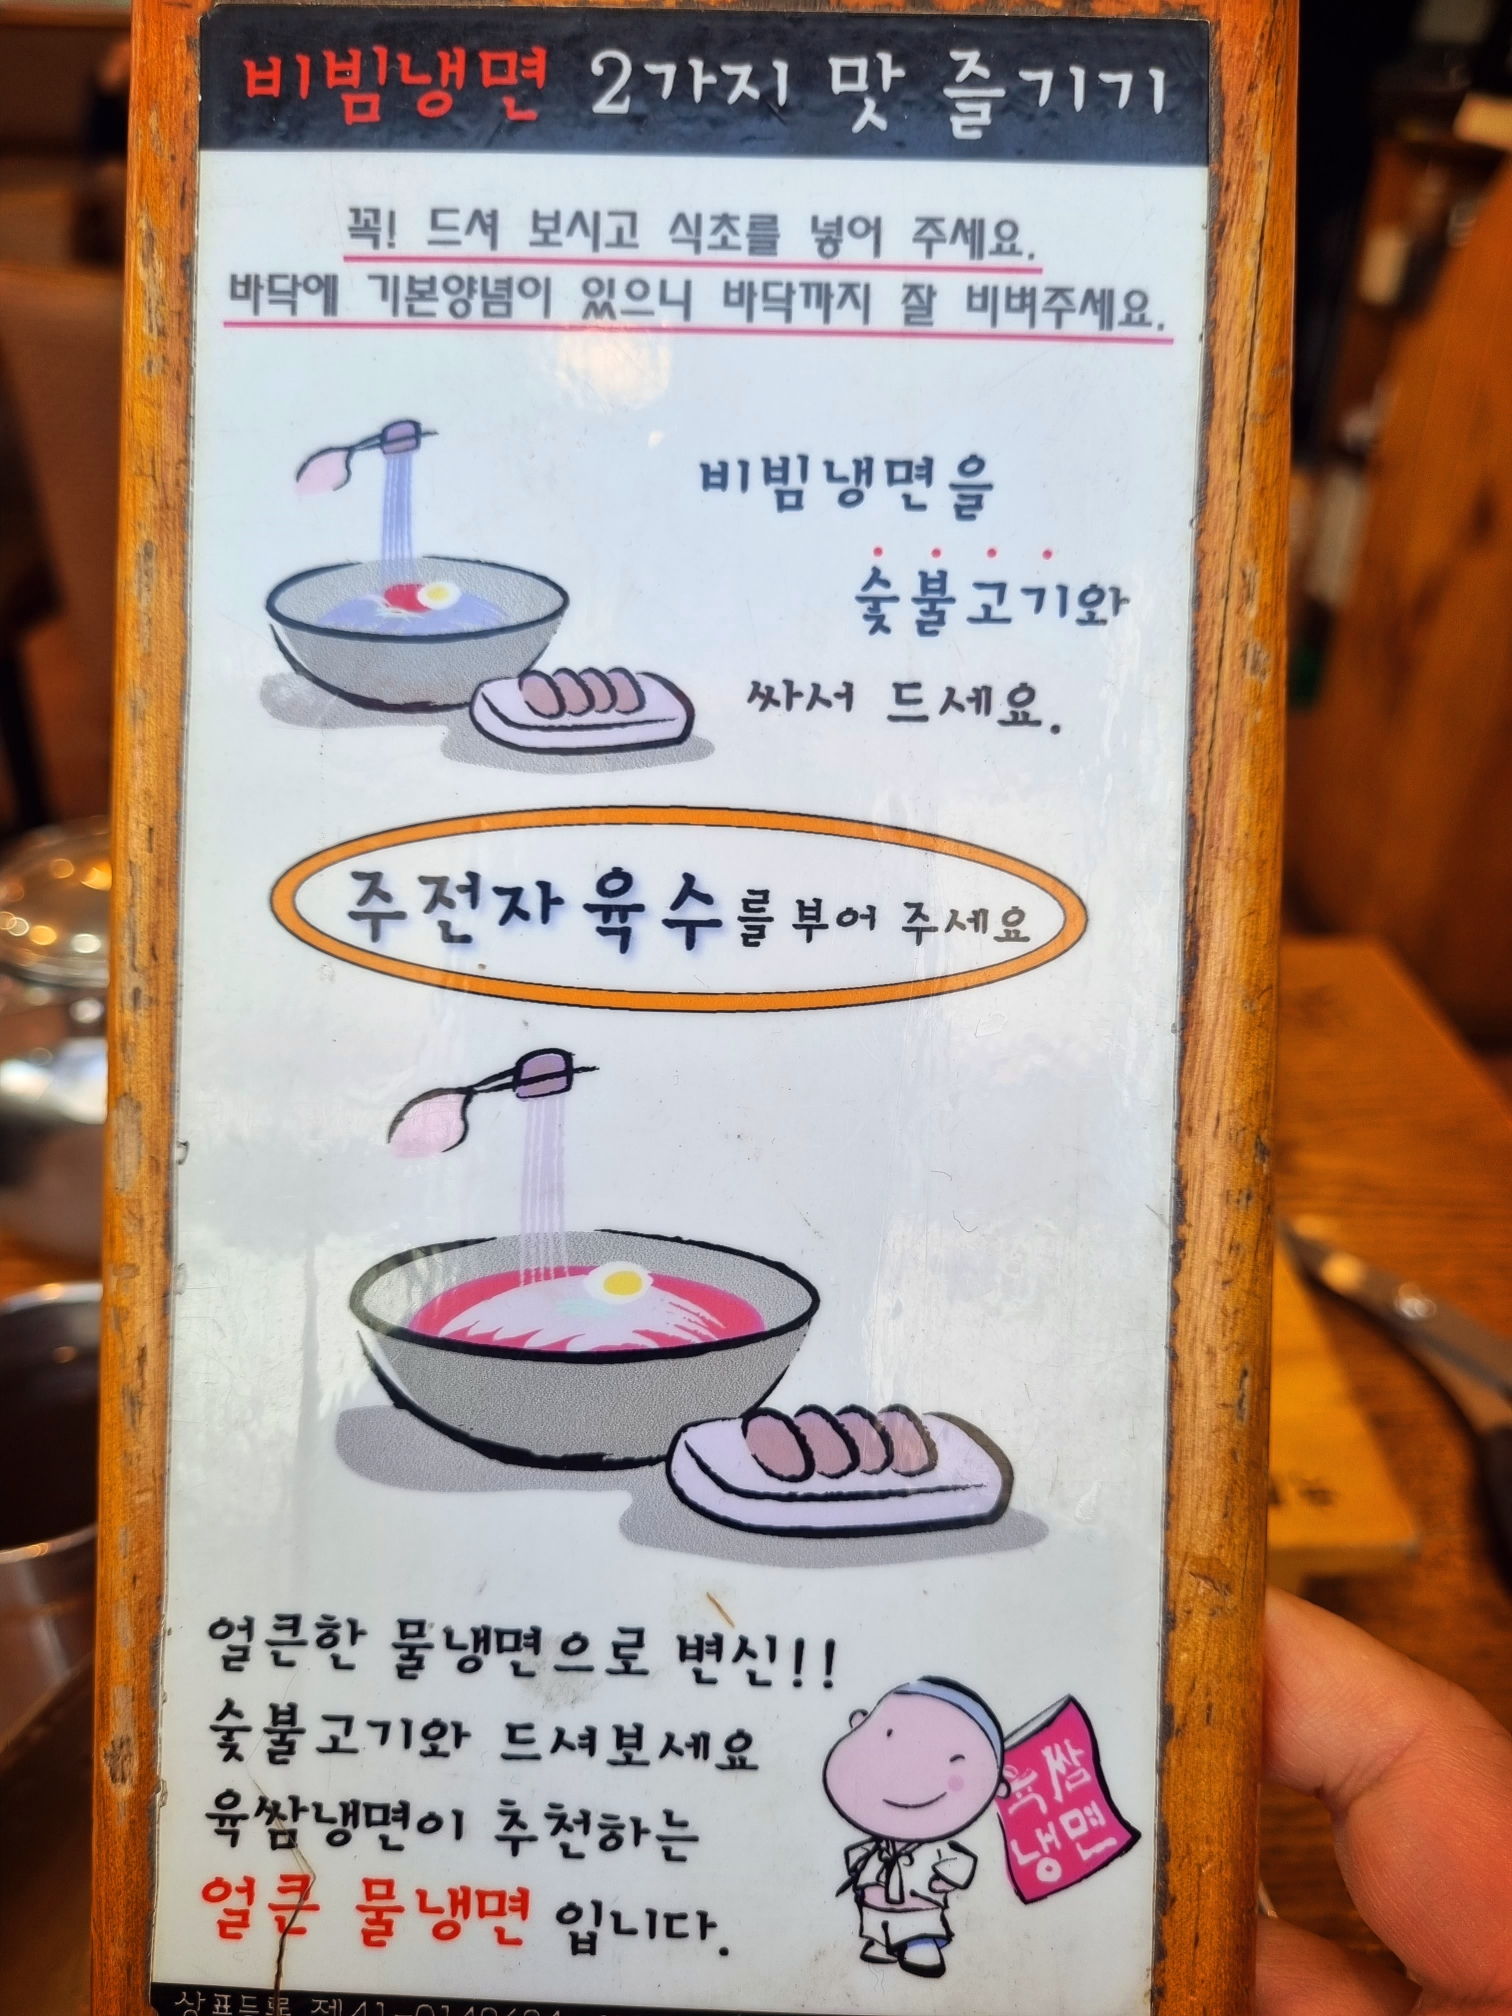 비빔냉면 2가지 맛 즐기기
꼭! 드셔 보시고 식초를 넣어 주세요.
바닥에 기본양념이 있으니 바닥까지 잘 비벼주세요.
비빔냉면을
숯불고기와
싸서 드세요.
주전자육수를 부어 주세요
얼큰한 물냉면으로 변신!!
숯불고기와 드셔보세요
육쌈냉면이 추천하는
얼큰 물냉면 입니다.
육쌈
냉면
상표등록 제41-